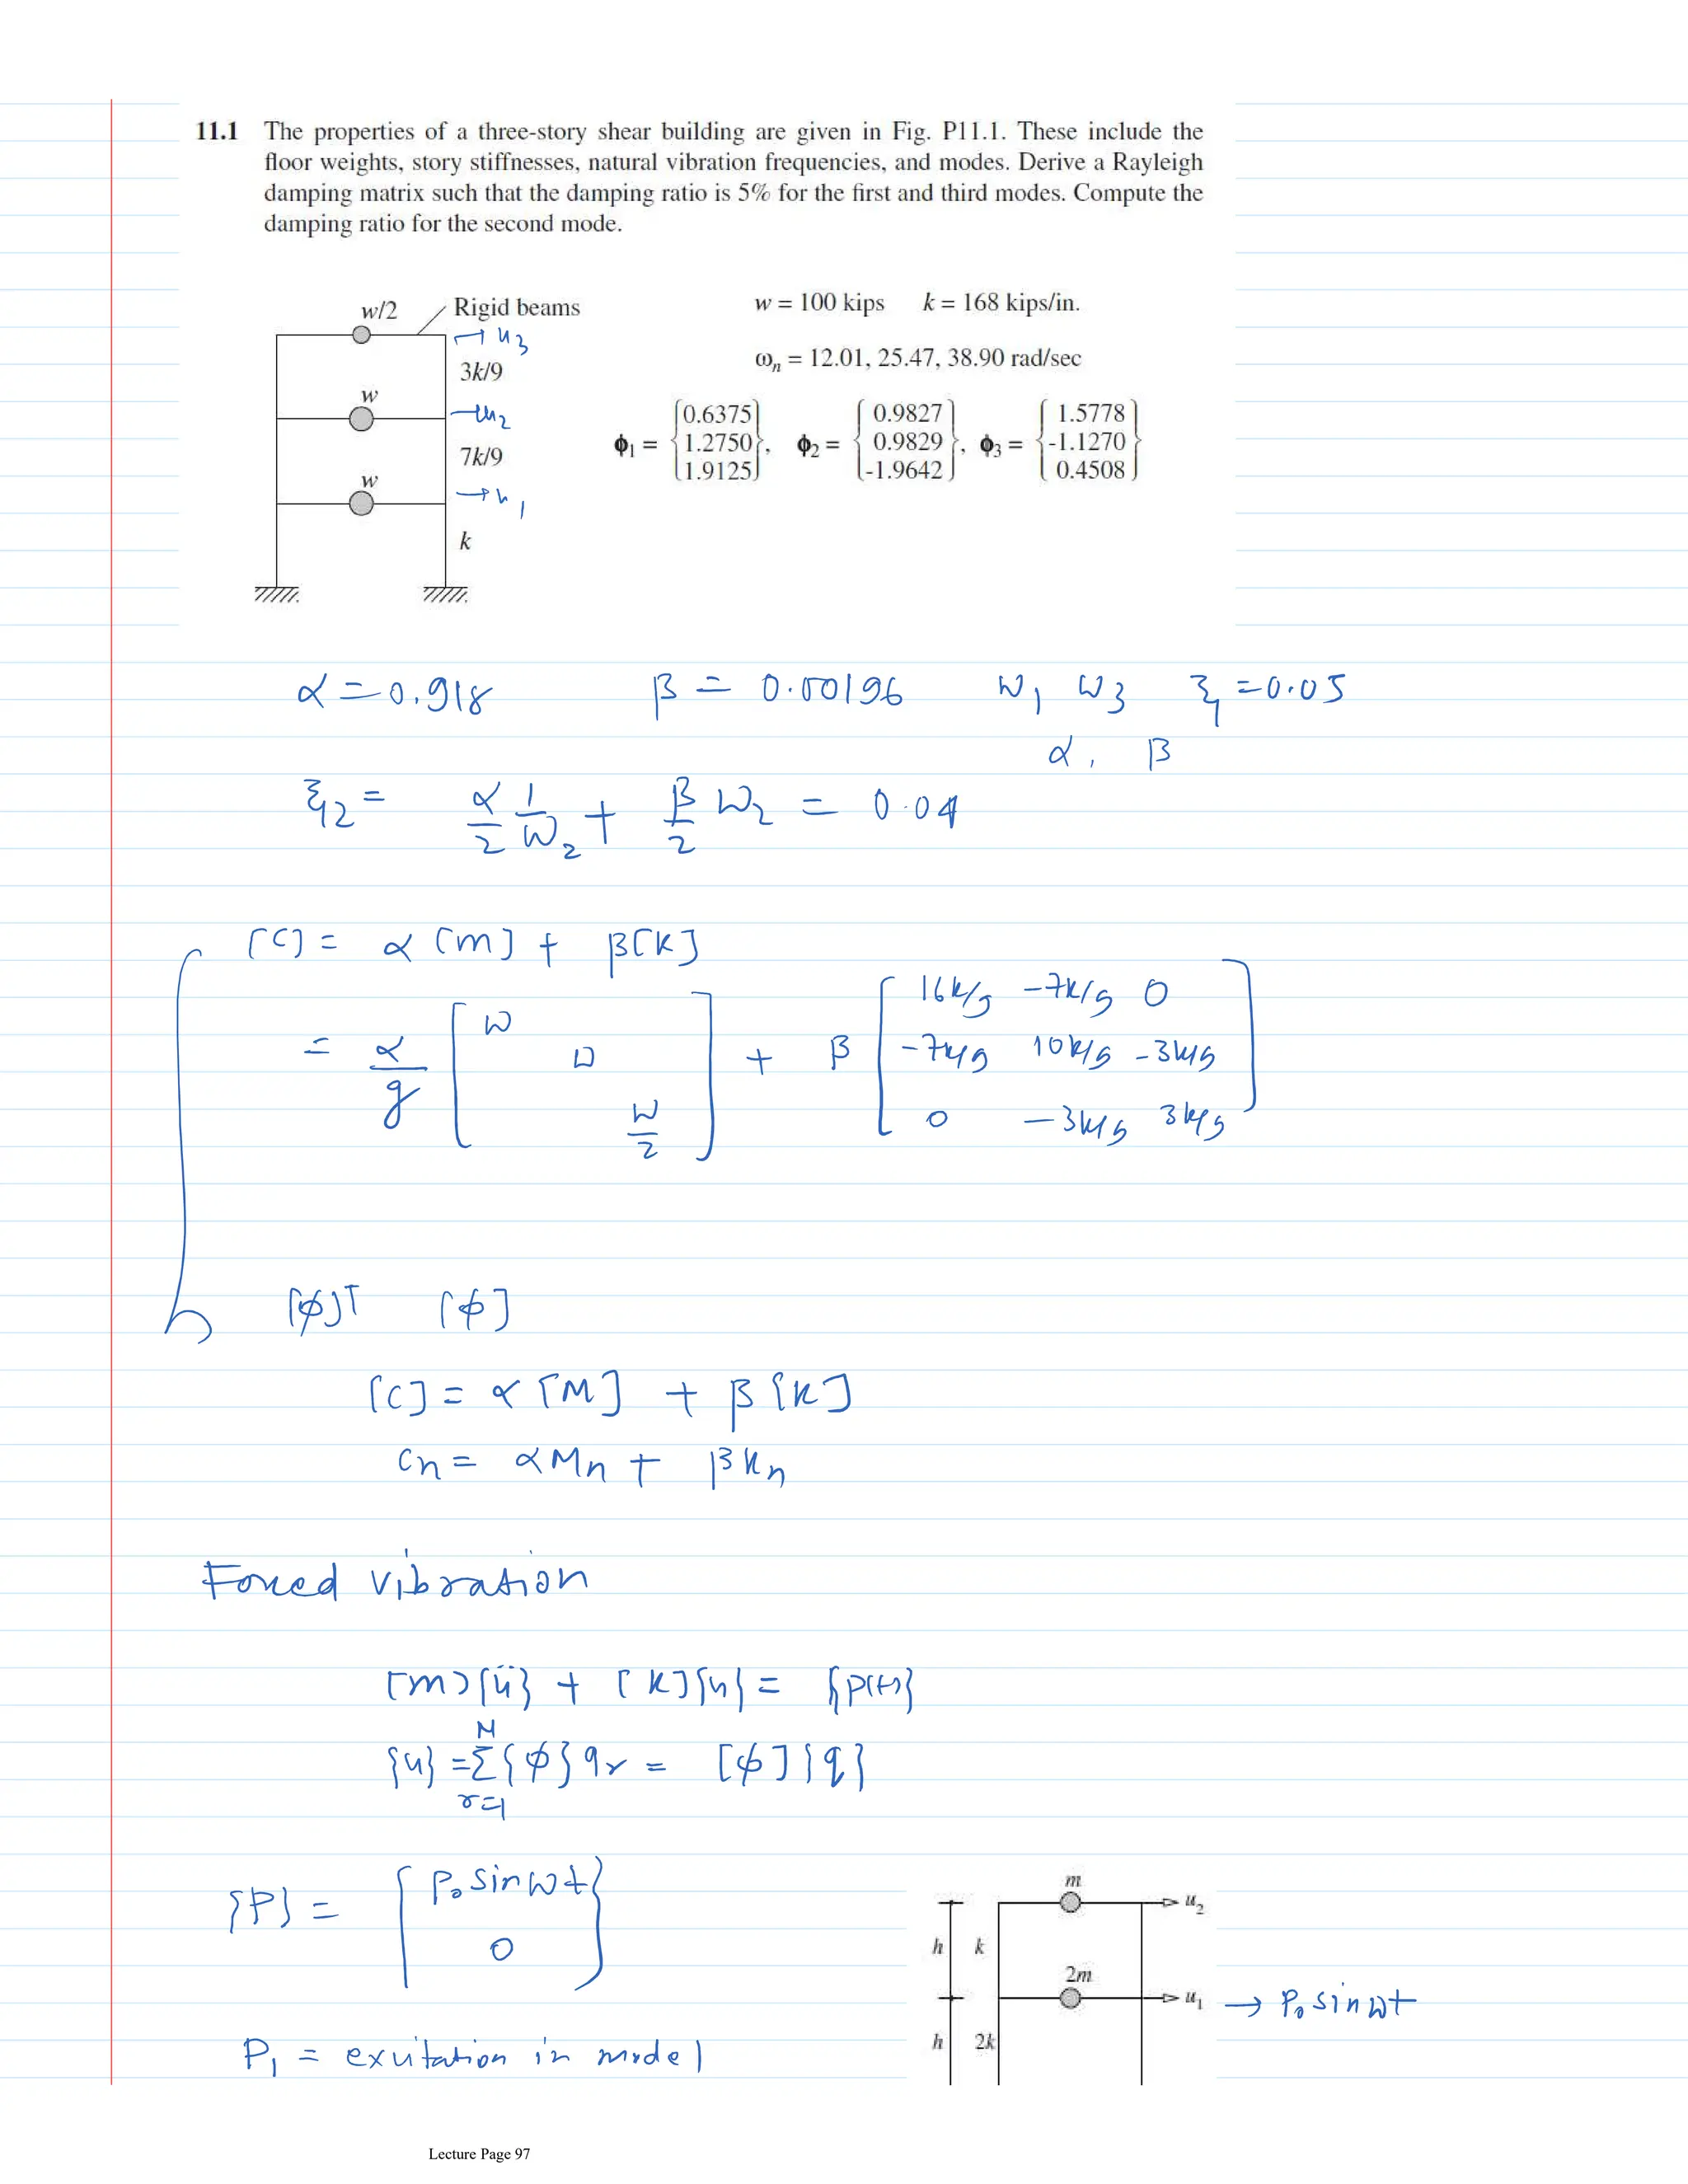 11.1 The properties of a three-story shear building are given in Fig. P11.1. These include the
floor weights, story stiffnesses, natural vibration frequencies, and modes. Derive a Rayleigh
damping matrix such that the damping ratio is 5% for the first and third modes. Compute the
damping ratio for the second mode.
w/2 Rigid beams
→ u3
3k/9
w
→ u2
7k/9
w
→ u1
k
w = 100 kips k = 168 kips/in.
ωn = 12.01, 25.47, 38.90 rad/sec
ϕ1 = {0.6375 1.2750 1.9125}, ϕ2 = {0.9827 0.9829 -1.9642}, ϕ3 = {1.5778 -1.1270 0.4508}
α = 0.918 β = 0.00196 ω1 ω3 ξ1 = 0.05
α, β
ξ2 = α/2 1/ω2 + β/2 ω2 = 0.04
[c] = α [m] + β[k]
= α/g [w w w/2] + β [16k/9 -7k/9 0
-7k/9 10k/9 -3k/9
0 -3k/9 3k/9]
[ϕ]T [ϕ]
[C] = α [M] + β [K]
Cn = αMn + βKn
Forced vibration
[m]{ü} + [k]{u} = {P(t)}
{u} = Σ r=1 N {ϕ} qr = [ϕ]{q}
{P} = {P0 sin ωt
0}
P1 = exuitation in mode 1
m
u2
h k
2m
u1 → P0 sin ωt
h 2k
Lecture Page 97